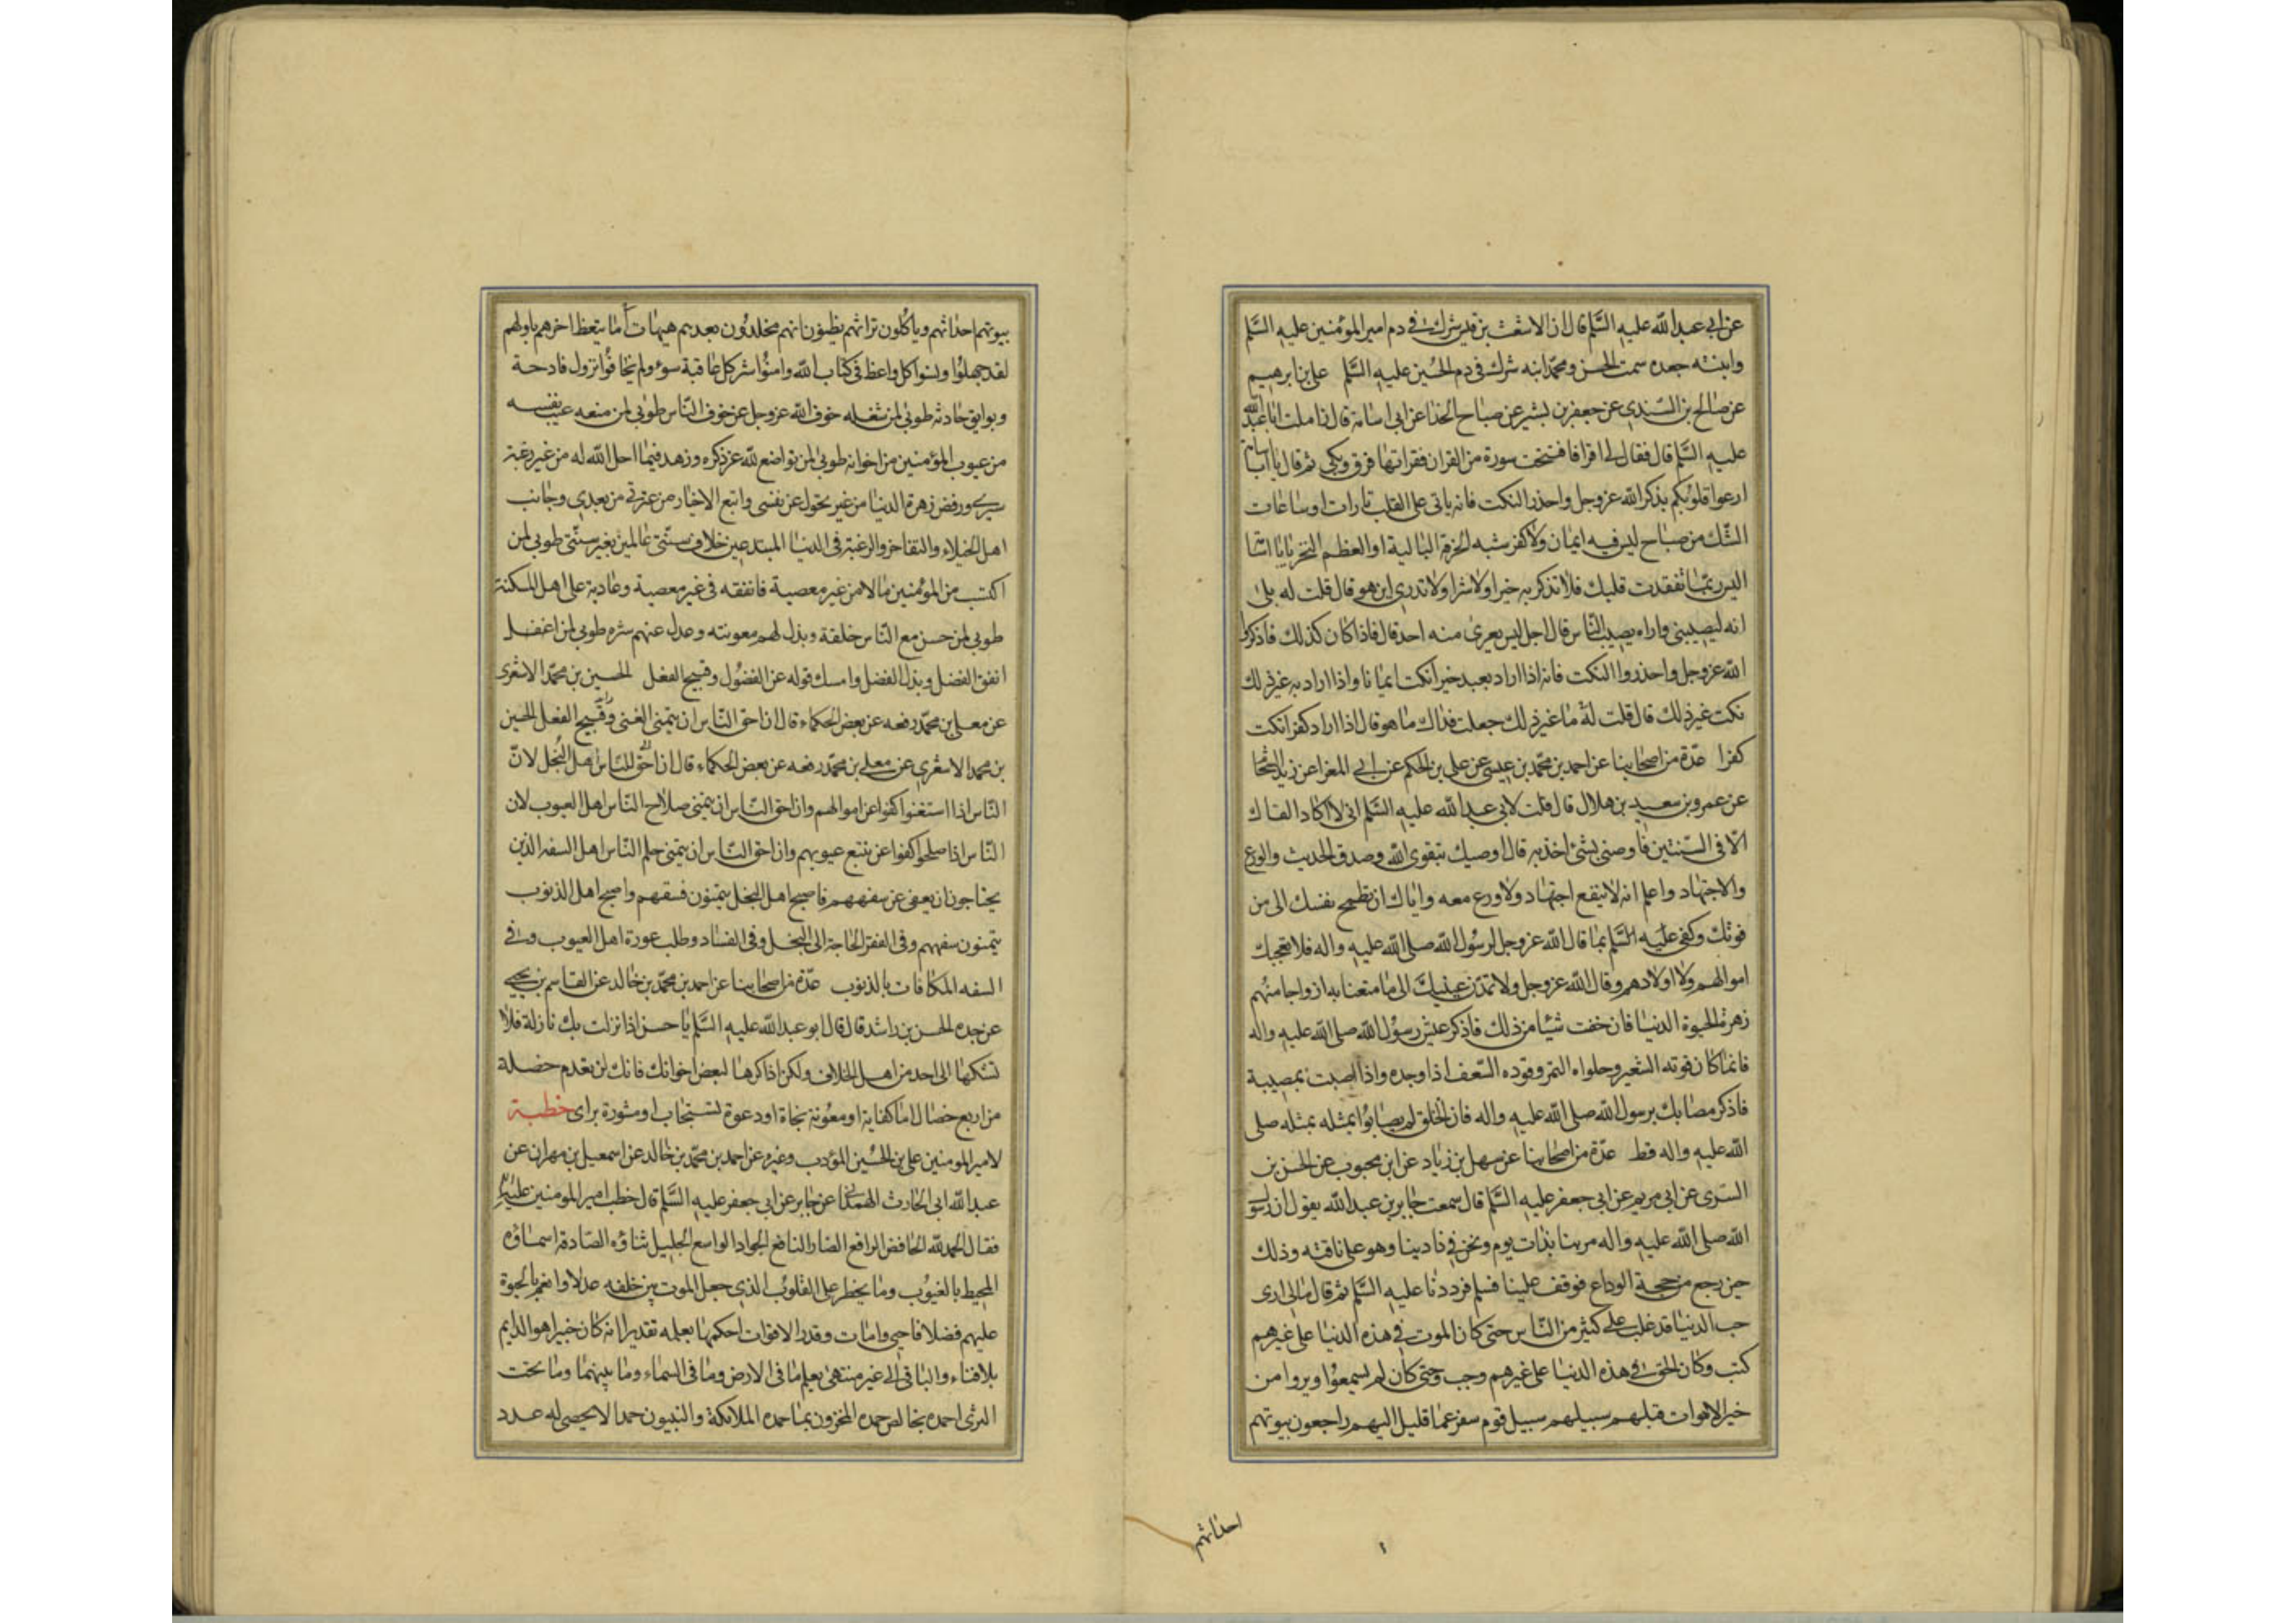 عن ابي عبد الله عليه السلم قال ان الاشعث بن قيس شرك في دم امير المؤمنين عليه السلم
وابنته جعده سمت الحسن ومحمد ابنه شرك في دم الحسين عليه السلم علي بن ابرهيم
عن صالح بن السندي عن جعفر بن بشير عن صباح الحذا عن ابي اسامة قال زاملت ابا عبد الله
عليه السلم قال فقال لي اقرا فافتتحت سورة من القران فقراتها فرق وبكى ثم قال يا ابا اسامة
ارعوا قلوبكم بذكر الله عز وجل واحذر النكت فانه ياتى على القلب تارات او ساعات
الشك من صباح ليس فيه ايمان ولا كفر شبه الخرقة البالية او العظم النخر يا با اسا
اليس ربما تفقدت قلبك فلا تذكر به خيرا ولا شرا ولا تدري اين هو قال قلت له بلى
انه ليصيبني واراه يصيب الناس قال اجل ليس يعرى منه احد قال فاذا كان كذلك فاذكروا
الله عز وجل واحذروا النكت فانه اذا اراد بعبد خيرا نكت ايمانا واذا اراد به غير ذلك
نكت غير ذلك قال قلت له ما غير ذلك جعلت فداك ما هو قال اذا اراد كفرا نكت
كفرا عدة من اصحابنا عن احمد بن محمد بن عيسى عن علي بن الحكم عن ابي المغرا عن زيد الشحا
عن عمرو بن سعيد بن هلال قال قلت لابي عبد الله عليه السلم اني لا اكاد القاك
الا في السنتين فاوصني بشئ اخذ به قال اوصيك بتقوى الله وصدق الحديث والورع
والاجتهاد واعلم انه لا ينفع اجتهاد ولا ورع معه واياك ان تطمح نفسك الى من
فوقك وكفى عليه السلم بما قال الله عز وجل لرسول الله صلى الله عليه واله فلا تعجبك
اموالهم ولا اولادهم وقال الله عز وجل ولا تمدن عينيك الى ما متعنا به ازواجا منهم
زهرة الحيوة الدنيا فان خفت شيئا من ذلك فاذكر عيش رسول الله صلى الله عليه واله
فانما كان قوته الشعير وحلواه التمر وقوده السعف اذا وجده واذا اصبت بمصيبة
فاذكر مصابك برسول الله صلى الله عليه واله فان الخلق لم يصابوا بمثله بمثله صلى
الله عليه واله قط عدة من اصحابنا عن سهل بن زياد عن ابن محبوب عن الحسن بن
السرى عن ابي مريم عن ابي جعفر عليه السلم قال سمعت جابر بن عبد الله يقول ان رسول
الله صلى الله عليه واله مر بنا بذات يوم ونحن في نادينا وهو على ناقته وذلك
حين رجع من حجة الوداع فوقف علينا فسلم فرددنا عليه السلم ثم قال مالى ارى
حب الدنيا قد غلب على كثير من الناس حتى كان الموت في هذه الدنيا على غيرهم
كتب وكان الحق في هذه الدنيا على غيرهم وجب وحتى كان لم يسمعوا ويروا من
خبر الاموات قبلهم سبيلهم سبيل قوم سفر عما قليل اليهم راجعون بيوتهم
احداثهم
بيوتهم احداثهم وياكلون تراثهم يظنون انهم مخلدون بعدهم هيهات أما يتعظ اخرهم باولهم
لقد جهلوا ونسوا كل واعظ في كتاب الله وامنوا شر كل عاقبة سوء ولم يخافوا نزول فادحة
وبوايق حادثه طوبى لمن شغله خوف الله عز وجل عن خوف الناس طوبى لمن منعه عيب نفسه
من عيوب المؤمنين من اخوانه طوبى لمن تواضع لله عز ذكره وزهد فيما احل الله له من غير رغبة
سيرى ورفض زهرة الدنيا من غير تحول عن نفسى واتبع الاخيار من عترتي من بعدي وجانب
اهل الخيلاء والتفاخر والرغبة في الدنيا المبتدعين خلاف سنتي عالمين بغير سنتي طوبى لمن
اكتسب من المؤمنين مالا من غير معصية فانفقه في غير معصية وعاد به على اهل المسكنة
طوبى لمن حسن مع الناس خلقه وبذل لهم معونته وعدل عنهم شره طوبى لمن
انفق الفضل وبذل الفضل وامسك قوله عن الفضول وقبيح الفعل الحسين بن محمد الاشعرى
عن معلى بن محمد رفعه عن بعض الحكماء قال ان احق الناس ان يتمنى الغنى وقبيح الفعل الحسين
بن محمد الاشعري عن معلى بن محمد رفعه عن بعض الحكماء قال ان احق للناس اهل البخل لان
الناس اذا استغنوا كفوا عن اموالهم وان احق الناس ان يتمنى صلاح الناس اهل العيوب لان
الناس اذا صلحوا كفوا عن تتبع عيوبهم وان احق الناس ان يتمنى حلم الناس اهل السفه الذين
يحتاجون ان يعفى عن سفههم فاصبح اهل البخل يتمنون فسقهم واصبح اهل الذنوب
يتمنون سفههم وفي الفقر الحاجة الى البخل وفي الفساد وطلب عورة اهل العيوب وفي
السفه المكافات بالذنوب عدة من اصحابنا عن احمد بن محمد بن خالد عن القاسم بن يحيى
عن جده الحسن بن راشد قال قال ابو عبد الله عليه السلم يا حسن اذا نزلت بك نازلة فلا
تشكها الى احد من اهل الخلاف ولكن اذكرها لبعض اخوانك فانك لن تعدم خصلة
من اربع خصال اما كفاية او معونة بجاة او دعوة تستجاب او مشورة براى خطبة
لامير المومنين علي بن الحسين المؤدب وغيره عن احمد بن محمد بن خالد عن اسمعيل بن مهران عن
عبد الله ابى الحارث الهمداني عن جابر عن ابي جعفر عليه السلم قال خطب امير المومنين عليه السلم
فقال الحمد لله الخافض الرافع الضار النافع الجواد الواسع الجليل ثناؤه الصادقة اسماؤه
المحيط بالغيوب وما يخطر على القلوب الذي جعل الموت بين خلقه عدلا وانعم بالحيوة
عليهم فضلا فاحيي وامات وقدر الاقوات احكمها بعلمه تقديرا انه كان خبيرا هو الدايم
بلا فناء والباقي الى غير منتهى يعلم ما في الارض وما في السماء وما بينهما وما تحت
الثرى احمده بخالص حمده المخزون بما حمده الملائكة والنبيون حمدا لا يحصى له عدد